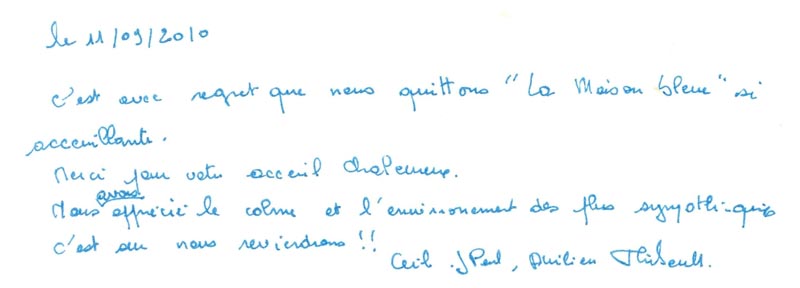 le 11/09/2010
c'est avec regret que nous quittons "La Maison bleue" si
acceuillante.
Merci pour votre acceuil chaleureux.
Nous avons apprécié le calme et l'environnement des plus sympathiques
c'est sur nous reviendrons !!
Cecil. JPaul, Thibault.